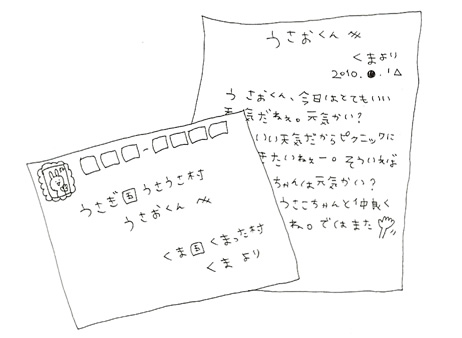 うさおくんへ
くまより
2010.●.1△
うさおくん、今日はとてもいい
天気だねぇ。元気かい？
いい天気だからピクニックに
きたいねぇー。そういえば
ちゃんは元気かい？
うさこちゃんと仲良く
ね。ではまた
うさぎ国うさうさ村
うさおくんへ
くま国くまった村
くまより